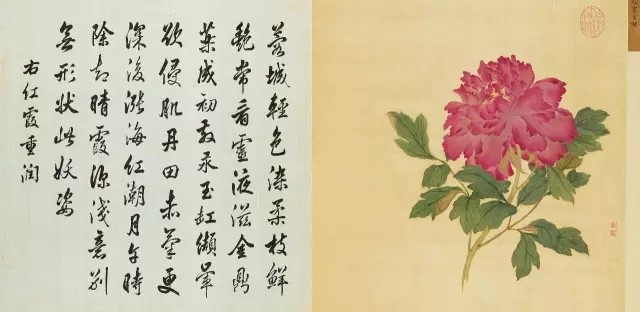 蓉城輕色染柔枝鮮
艷常看靈液滋金鼎
藥成初散汞玉缸纈暈
欲侵肌丹田赤氣更
深後漲海紅潮月午時
除却晴霞深淺意別
無形狀比妖姿
右紅霞重潤